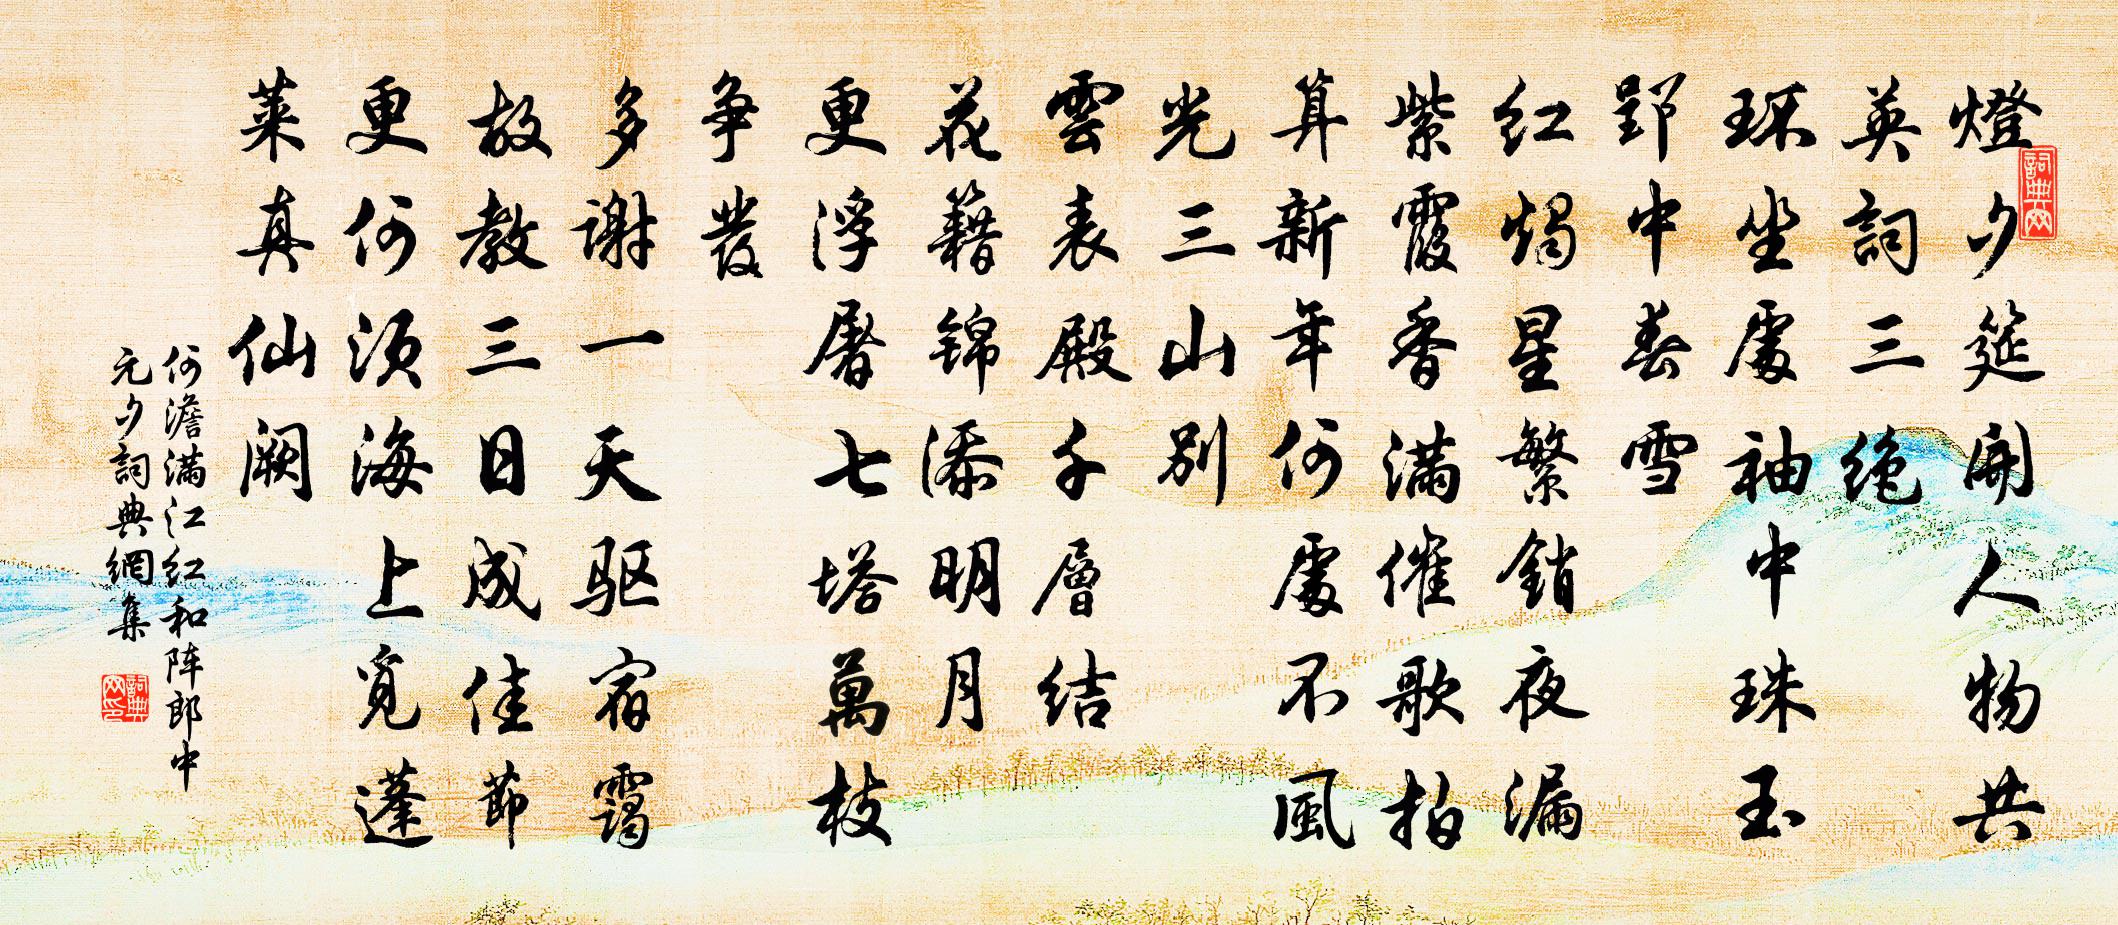 詞典网
燈夕筵開人物共
英詞三絶
环坐處袖中珠玉
郢中春雪
红燭星繁銷夜漏
紫霞香满催歌拍
算新年何處不風
光三山别
雲表殿千層结
花籍锦添明月
更浮屠七塔萬枝
争發
多謝一天驱宿靄
故教三日成佳節
更何须海上覓蓬
萊真仙阙
何澹满江红和阵郎中
元夕詞典網集
詞典网印